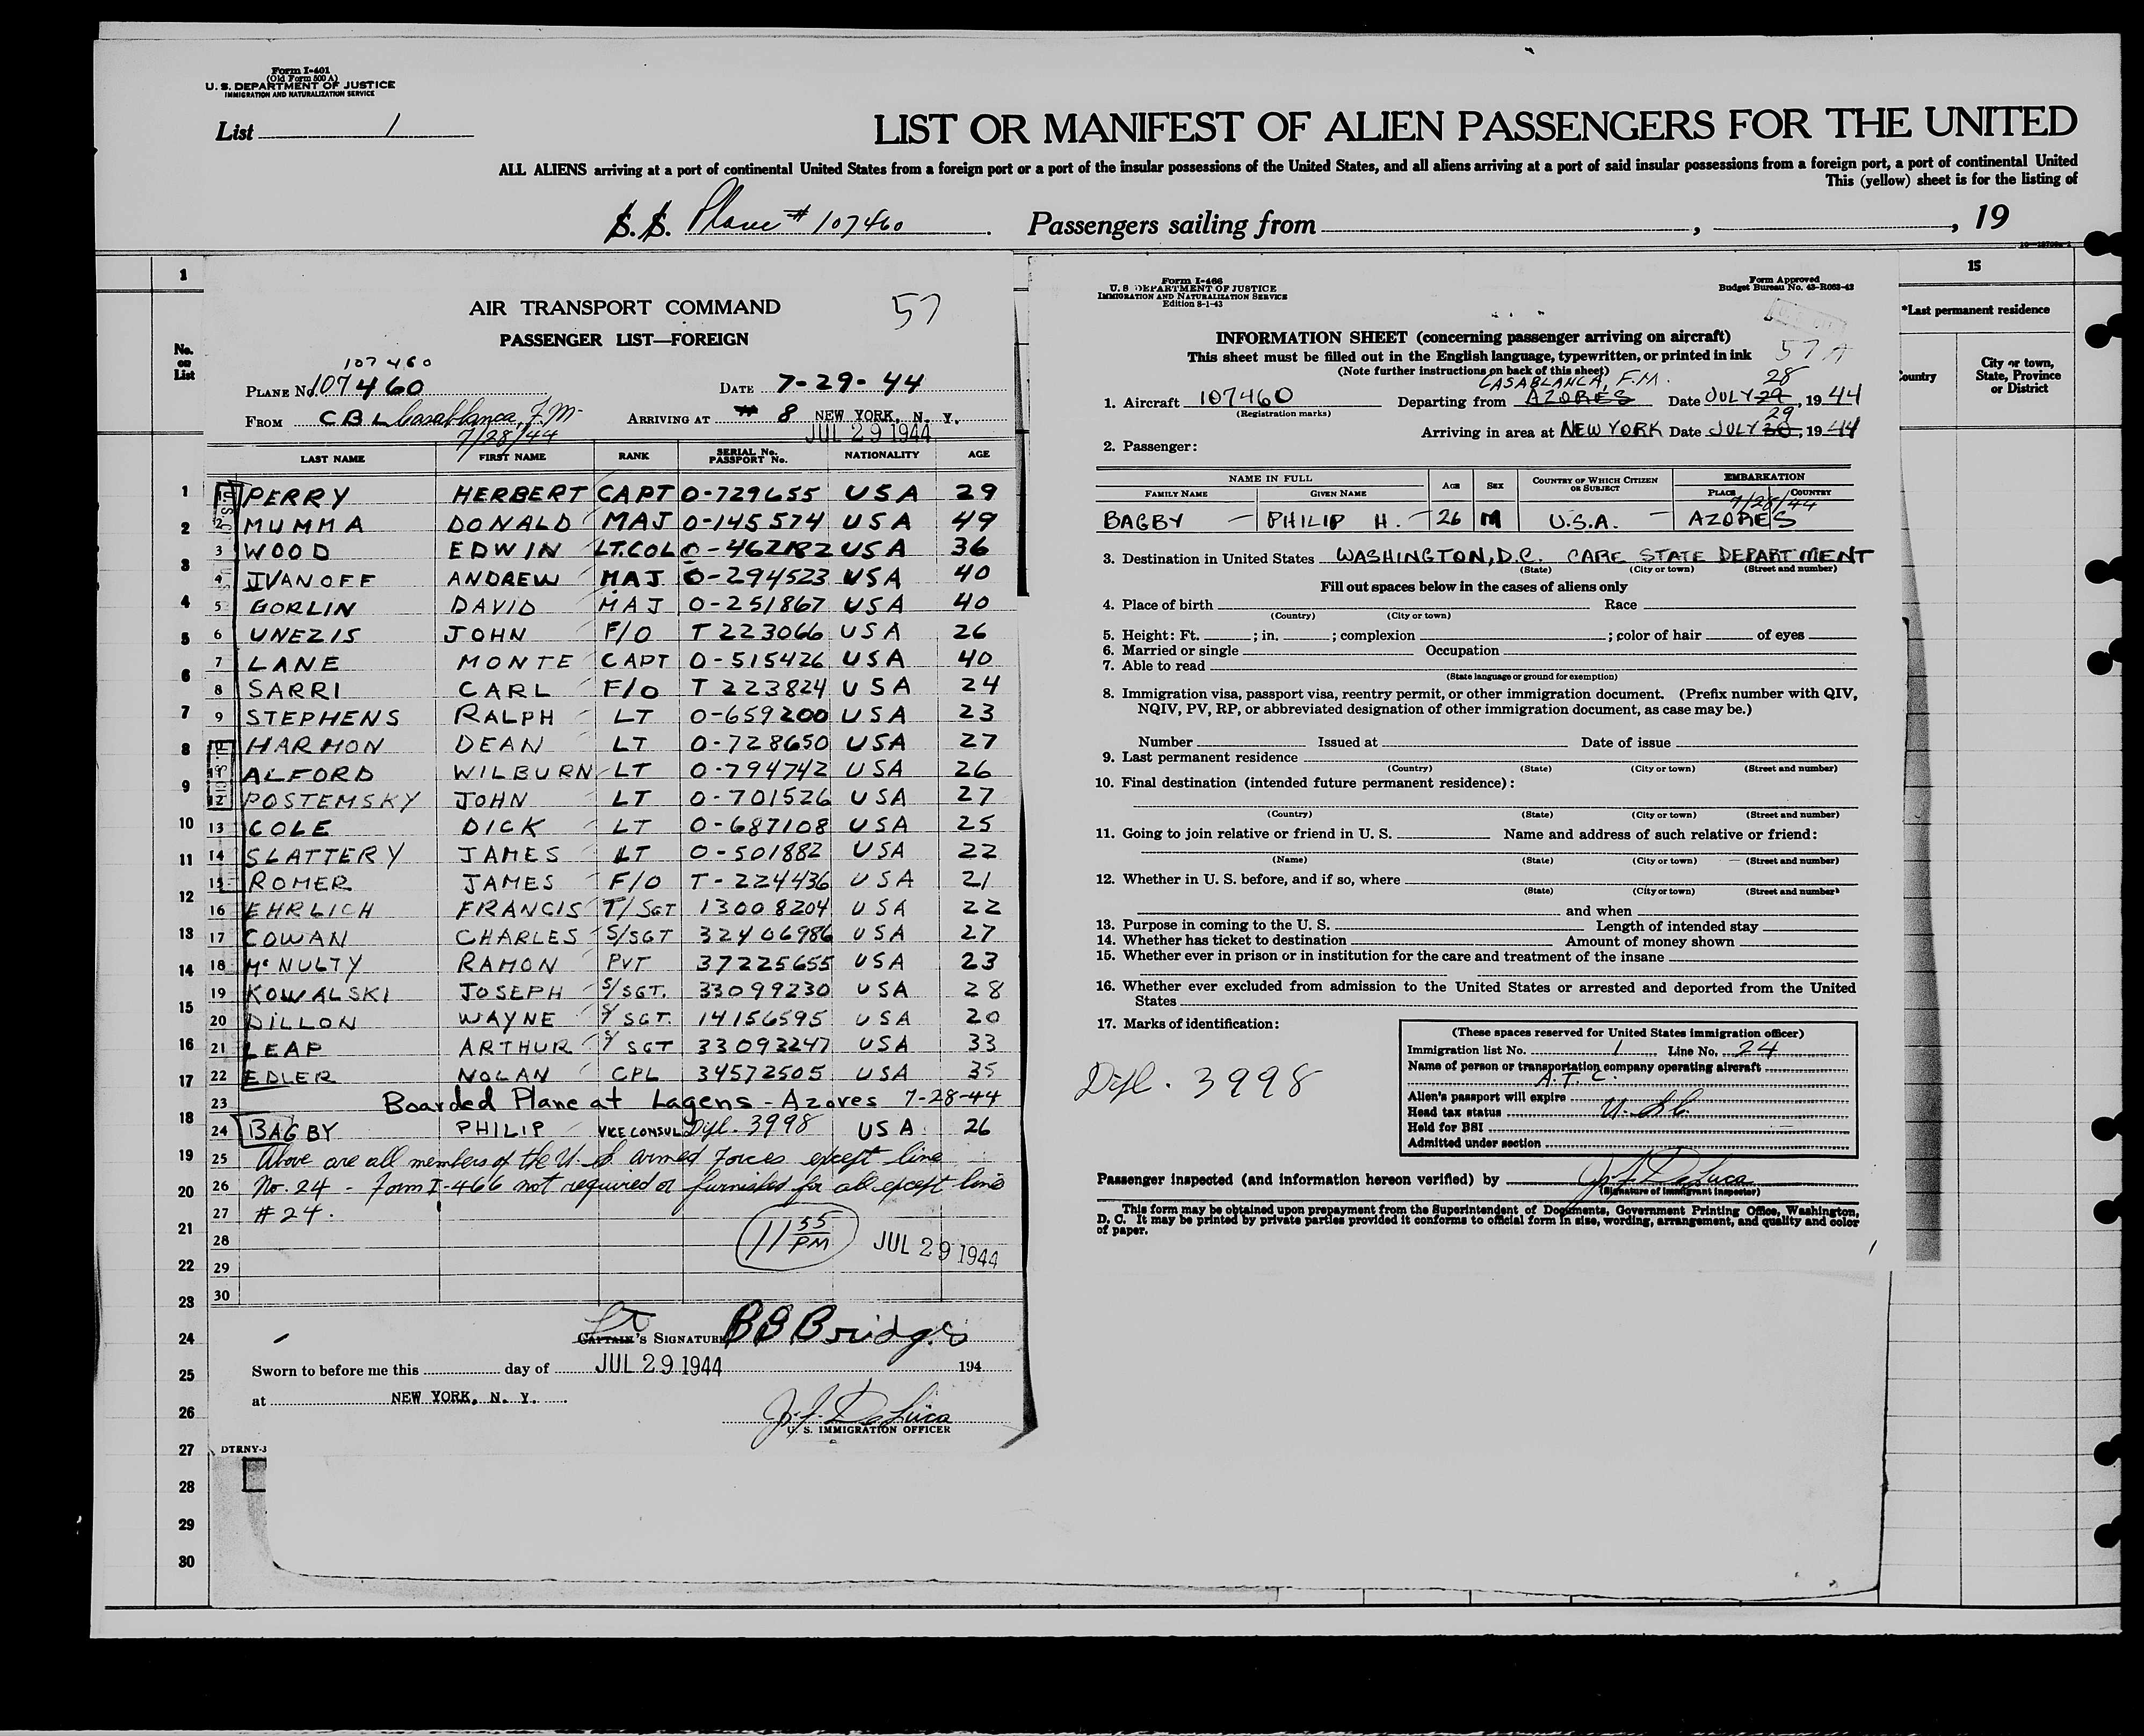 Form I-401
(Old Form 500 A)
U. S. DEPARTMENT OF JUSTICE
IMMIGRATION AND NATURALIZATION SERVICE
List 1
LIST OR MANIFEST OF ALIEN PASSENGERS FOR THE UNITED
ALL ALIENS arriving at a port of continental United States from a foreign port or a port of the insular possessions of the United States, and all aliens arriving at a port of said insular possessions from a foreign port, a port of continental United
This (yellow) sheet is for the listing of
S. S. Plane # 107460. Passengers sailing from , , 19
1
No. on List
AIR TRANSPORT COMMAND 57
PASSENGER LIST—FOREIGN
107460
PLANE No. 107460 DATE 7-29-44
FROM CBL Casablanca, F.M. ARRIVING AT # 8 NEW YORK, N. Y.
7/28/44 JUL 29 1944
LAST NAME FIRST NAME RANK SERIAL No. PASSPORT No. NATIONALITY AGE
1 PERRY HERBERT CAPT O-729655 USA 29
2 MUMMA DONALD MAJ O-145574 USA 49
3 WOOD EDWIN LT.COL O-462182 USA 36
4 IVANOFF ANDREW MAJ O-294523 USA 40
5 GORLIN DAVID MAJ O-251867 USA 40
6 UNEZIS JOHN F/O T 223066 USA 26
7 LANE MONTE CAPT O-515426 USA 40
8 SARRI CARL F/O T 223824 USA 24
9 STEPHENS RALPH LT O-659200 USA 23
HARMON DEAN LT O-728650 USA 27
11 ALFORD WILBURN LT O-794742 USA 26
12 POSTEMSKY JOHN LT O-701526 USA 27
13 COLE DICK LT O-687108 USA 25
14 SLATTERY JAMES LT O-501882 USA 22
15 ROMER JAMES F/O T-224436 USA 21
16 EHRLICH FRANCIS T/SGT 13008204 USA 22
17 COWAN CHARLES S/SGT 32406986 USA 27
18 McNULTY RAMON PVT 37225655 USA 23
19 KOWALSKI JOSEPH S/SGT. 33099230 USA 28
20 DILLON WAYNE S/SGT. 14156595 USA 20
21 LEAP ARTHUR S/SGT 33093247 USA 33
22 EDLER NOLAN CPL 34572505 USA 35
23 Boarded Plane at Lagens - Azores 7-28-44
24 BAGBY PHILIP VICE CONSUL Dipl. 3998 USA 26
25 Above are all members of the U.S. armed forces except line
26 No. 24 - Form I-466 not required or furnished for all except line
27 # 24.
28 11 55 PM JUL 29 1944
29
30
Lt
CAPTAIN'S SIGNATURE B B Bridges
Sworn to before me this day of JUL 29 1944 194
at NEW YORK, N. Y.
J. F. DeLuca
U. S. IMMIGRATION OFFICER
DTRNY-3
1
2
3
4
5
6
7
8
9
10
11
12
13
14
15
16
17
18
19
20
21
22
23
24
25
26
27
28
29
30
Form I-466
U. S. DEPARTMENT OF JUSTICE
IMMIGRATION AND NATURALIZATION SERVICE
Edition 8-1-43
Form Approved
Budget Bureau No. 43-R063-42
INFORMATION SHEET (concerning passenger arriving on aircraft)
This sheet must be filled out in the English language, typewritten, or printed in ink 57A
(Note further instructions on back of this sheet)
CASABLANCA, F.M. 28
1. Aircraft 107460 Departing from AZORES Date JULY 29, 1944
(Registration marks) 29
Arriving in area at NEW YORK Date JULY 30, 1944
2. Passenger:
NAME IN FULL AGE SEX COUNTRY OF WHICH CITIZEN OR SUBJECT EMBARKATION
FAMILY NAME GIVEN NAME PLACE COUNTRY
7/28/44
BAGBY PHILIP H. 26 M U.S.A. AZORES
3. Destination in United States WASHINGTON, D.C. CARE STATE DEPARTMENT
(State) (City or town) (Street and number)
Fill out spaces below in the cases of aliens only
4. Place of birth Race
(Country) (City or town)
5. Height: Ft. ; in. ; complexion ; color of hair of eyes
6. Married or single Occupation
7. Able to read
(State language or ground for exemption)
8. Immigration visa, passport visa, reentry permit, or other immigration document. (Prefix number with QIV,
NQIV, PV, RP, or abbreviated designation of other immigration document, as case may be.)
Number Issued at Date of issue
9. Last permanent residence
(Country) (State) (City or town) (Street and number)
10. Final destination (intended future permanent residence):
(Country) (State) (City or town) (Street and number)
11. Going to join relative or friend in U. S. Name and address of such relative or friend:
(Name) (State) (City or town) (Street and number)
12. Whether in U. S. before, and if so, where
(State) (City or town) (Street and number)
and when
13. Purpose in coming to the U. S. Length of intended stay
14. Whether has ticket to destination Amount of money shown
15. Whether ever in prison or in institution for the care and treatment of the insane
16. Whether ever excluded from admission to the United States or arrested and deported from the United
States
17. Marks of identification:
Dipl. 3998
(These spaces reserved for United States immigration officer)
Immigration list No. 1 Line No. 24
Name of person or transportation company operating aircraft
A.T.C.
Alien's passport will expire
Head tax status U.S.C.
Held for BSI
Admitted under section
Passenger inspected (and information hereon verified) by J. F. DeLuca
(Signature of immigrant inspector)
This form may be obtained upon prepayment from the Superintendent of Documents, Government Printing Office, Washington,
D. C. It may be printed by private parties provided it conforms to official form in size, wording, arrangement, and quality and color
of paper.
15
*Last permanent residence
Country City or town, State, Province or District